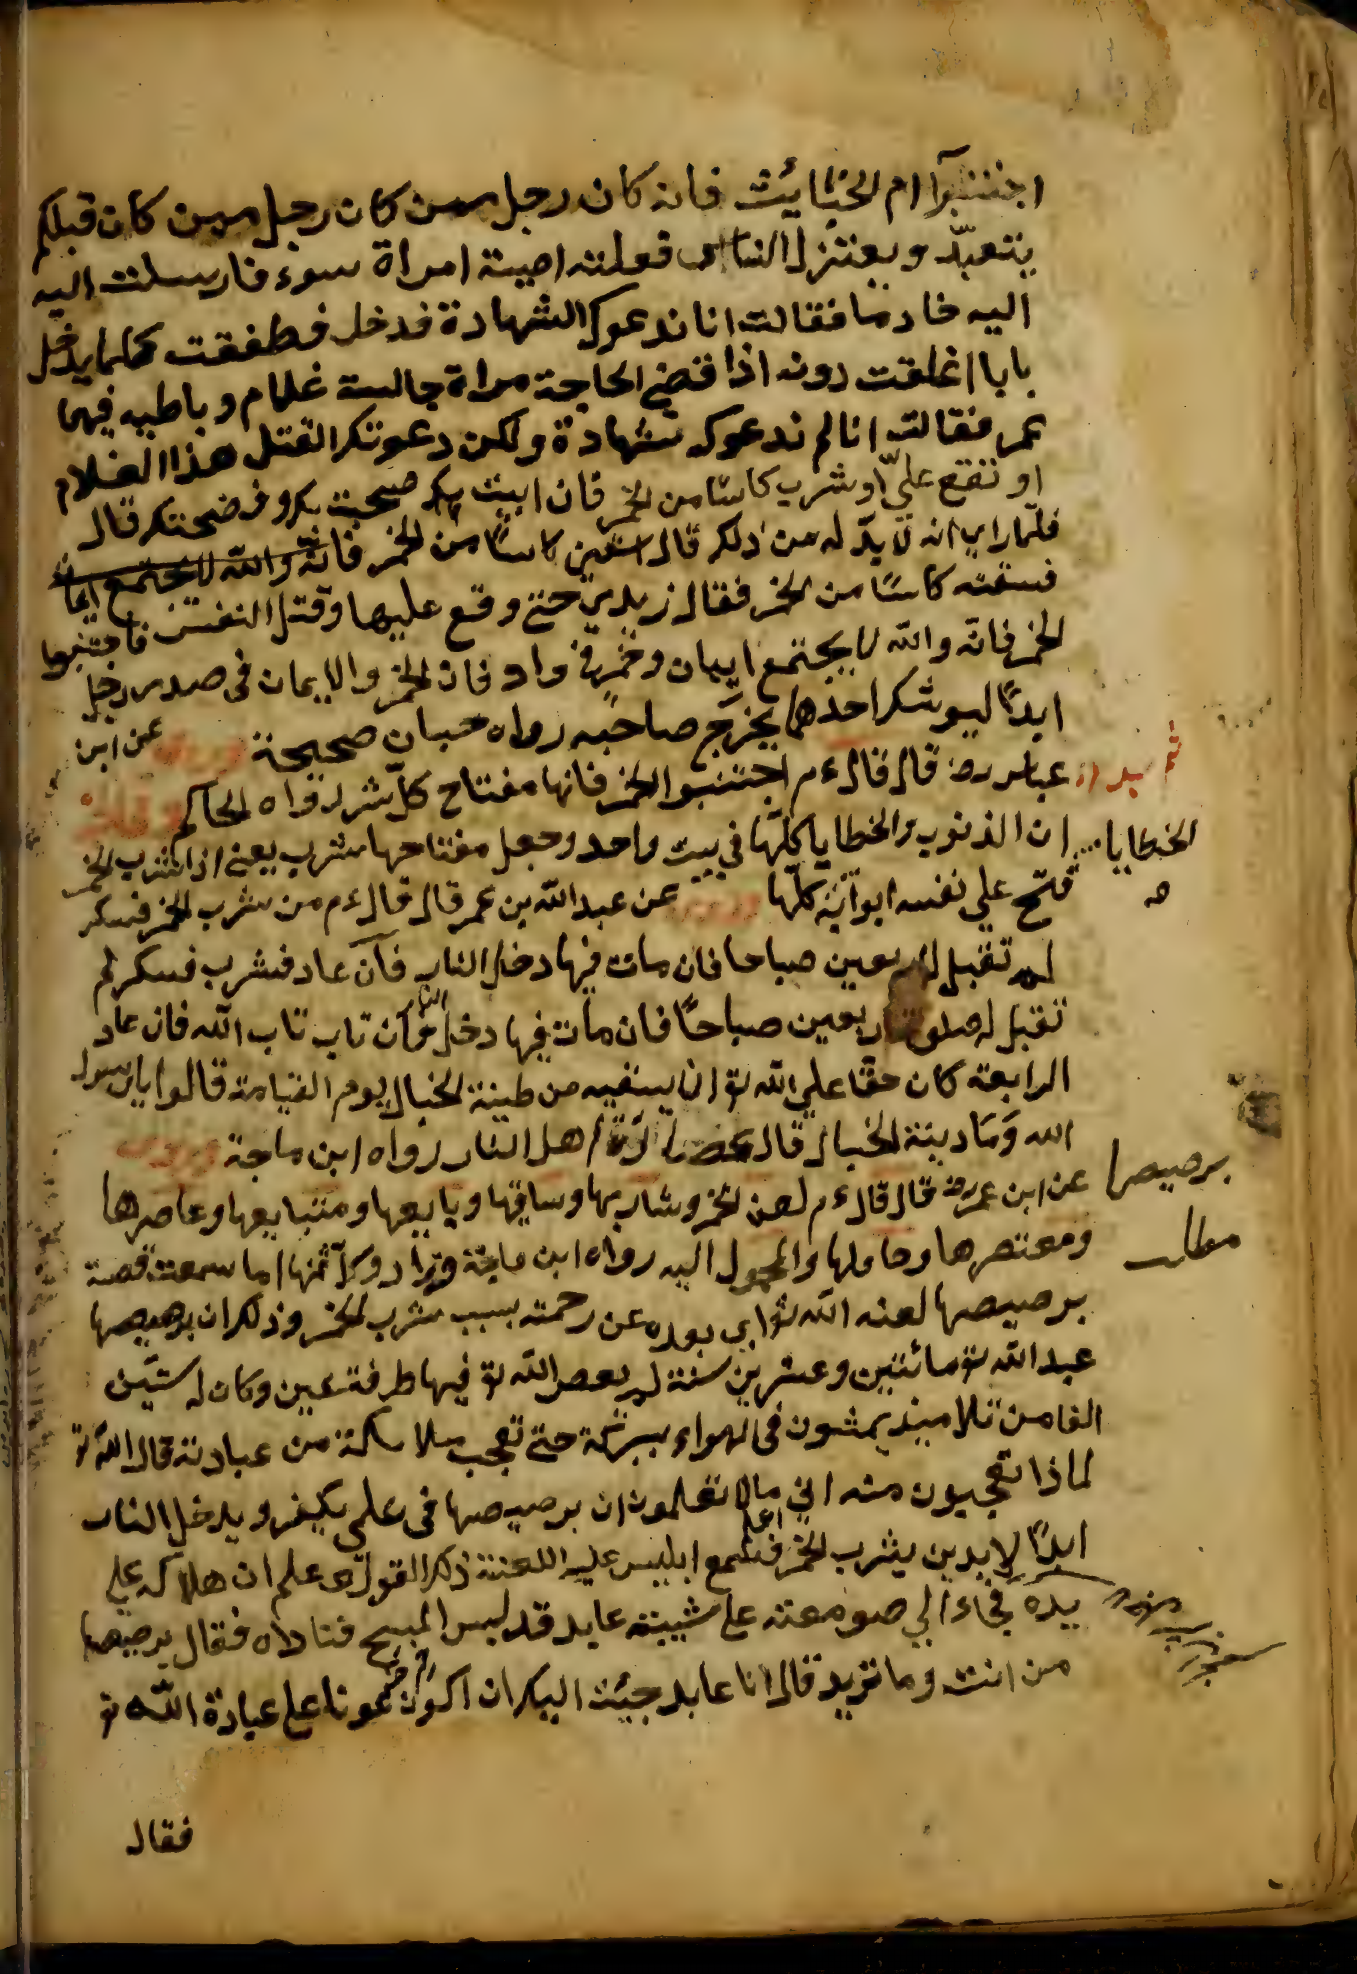 اجتنبوا ام الخبايئث فانه كان رجل ممن كان رجل ممن كان قبلكم
يتعبد ويعتزل الناس فعلقته امراة سوء فارسلت اليه
اليه خادما فقالت انا ندعوك الشهادة فدخل فطفقت كلما يدخل
بابا اغلقت دونه اذا قضى الحاجة مراة جالسة غلام وباطيه فيها
خمر فقالت انا لم ندعوك شهادة ولكن دعوتك القتل هذا الغلام
او تقع علي او شرب كاسا من الخمر فان ابيت صحبت بك وفضحتك قال
فلما راى انه لا بد له من ذلك قال اسقين كاسا من الخمر فانه والله لا يجتمع ايمان
فسقته كاسا من الخمر فقال زيدي حتى وقع عليها وقتل النفس فاجتنبوا
الخمر فانه والله لا يجتمع ايمان وخمر في واد فان الخمر والايمان في صدر رجل
ابدا ليوشك احدهما يخرج صاحبه رواه حبان صحيحة وروى عن ابن
عباس رض قال قال ءم اجتنبوا الخمر فانها مفتاح كل شر رواه الحاكم
ان الذنوب والخطايا كلها في بيت واحد وجعل مفتاحها شرب يعنى اذا شرب الخمر
الخطايا
فتح على نفسه ابوابه كلها وروى عن عبد الله بن عمر قال قال ءم من شرب الخمر فسكر
لم تقبل له اربعين صباحا فان مات فيها دخل النار فان عاد فشرب فسكر لم
تقبل له صلوة اربعين صباحا فان مات فيها دخل النار فان تاب تاب الله فان عاد
الرابعة كان حقا على الله تو ان يسقيه من طينة الخبال يوم القيامة قالوا يا رسول
الله وما دينة الخبال قال اهل النار رواه ابن ماجة وروى
عن ابن عمر رض قال قال ءم لعن الخمر وشاربها وساقيها وبايعها ومتبايعها وعاصرها
برصيصا
ومعتصرها وحاملها والمحمول اليه رواه ابن ماجة وزاد وكل ثمنها اما سمعت قصة
مطلب
برصيصها لعنه الله تو اي بعده عن رحمته بسبب شرب الخمر وذلك ان برصيصها
عبد الله تو مائتين وعشرين سنة لم يعص الله تو فيها طرفة عين وكان له ستين
الفا من تلاميذ يمشون في الهواء ببركة حتى تعجب ملائكة من عبادته قال الله تو
لماذا تعجبون منه اني ما لا تعلمون ان برصيصها في علمى يكفر ويدخل النار
ابدا لابدين يشرب الخمر فسمع ابليس عليه اللعنة ذكر القول علم ان هلاكه على
يده فجاء الي صومعته على مشيبته عابد قد لبس المسح فناداه فقال برصيصها
من انت وما تريد قال انا عابد جيئت اليك ان اكون عونا على عبادة الله تو
فقال